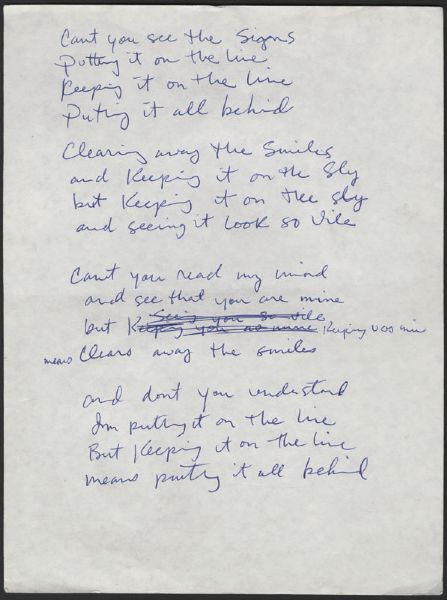 Cant you see the Signs
Putting it on the line
Keeping it on the line
Puting it all behind
Clearing away the Smiles
and Keeping it on the Sly
but Keeping it on the sly
and seeing it look so vile
Cant you read my mind
and see that you are mine
Seeing you so vile
but Keeping you as mine Keeping you mine
means Clears away the smiles
and dont you understand
Im putting it on the line
But Keeping it on the line
means putting it all behind